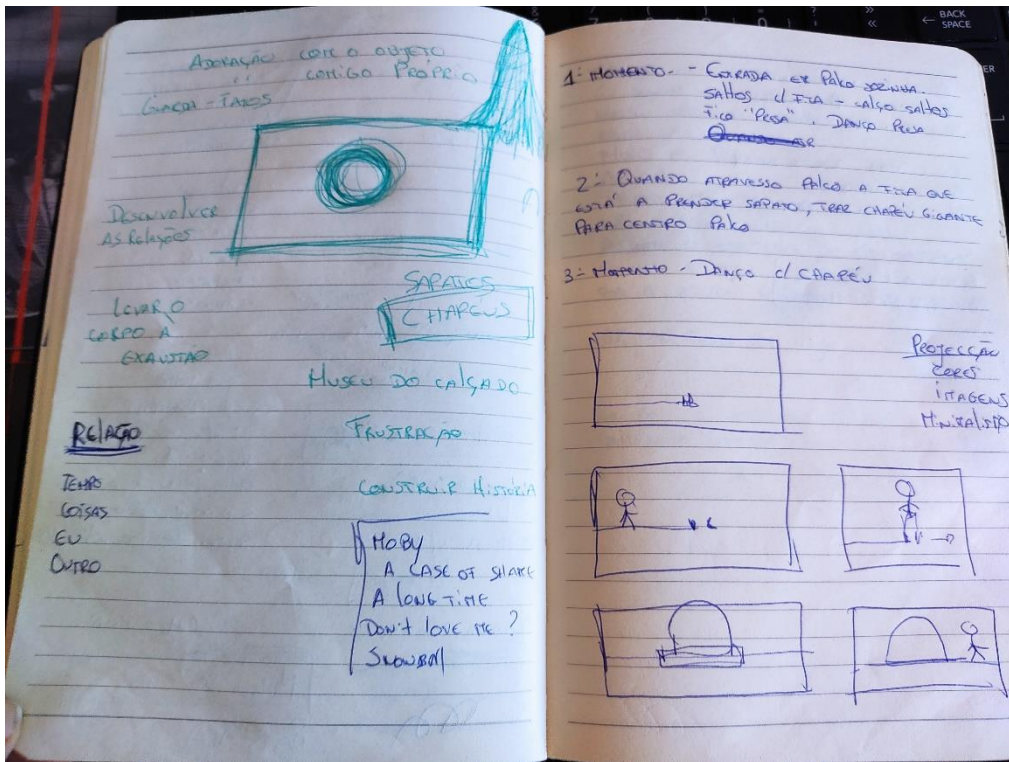 ADORAÇÃO COM O OBJETO
" COMIGO PRÓPRIO
GUARDA-FATOS
DESENVOLVER
AS RELAÇÕES
SAPATOS
CHAPEUS
LEVAR O
CORPO À
EXAUSTÃO
MUSEU DO CALÇADO
RELAÇÃO
FRUSTRAÇÃO
TEMPO
COISAS
EU
OUTRO
CONSTRUIR HISTÓRIA
MOBY
A CASE OF SHAME
A LONG TIME
DON'T LOVE ME ?
SNOWBALL
1º MOMENTO - ENTRADA EM PALCO SOZINHA.
SALTOS C/ FITA - CALÇO SALTOS
FICO "PRESA". DANÇO PRESA
2º QUANDO ATRAVESSO PALCO A FITA QUE
ESTÁ A PRENDER SAPATO, TRAZ CHAPÉU GIGANTE
PARA CENTRO PALCO
3º MOMENTO - DANÇO C/ CHAPÉU
PROJECÇÃO
CORES
IMAGENS
MINIMALISTA
BACK
SPACE